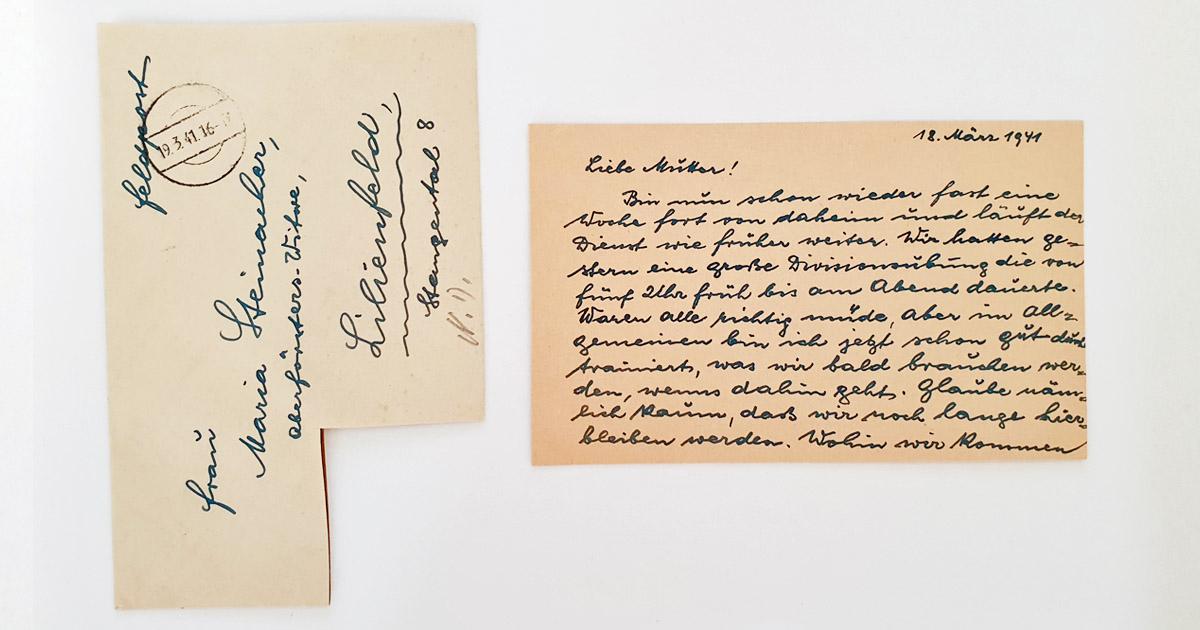 Feldpost
19.3.41.16-
Frau
Maria Steinacher,
Oberförsters-Witwe,
Lilienfeld,
Stangental 8
N.D.
18. März 1941
Liebe Mutter!
Bin nun schon wieder fast eine
Woche fort von daheim und läuft der
Dienst wie früher weiter. Wir hatten ge=
stern eine große Divisionsübung die von
fünf Uhr früh bis am Abend dauerte.
Waren alle richtig müde, aber im all=
gemeinen bin ich jetzt schon gut durch
trainiert, was wir bald brauchen wer=
den, wenns dahin geht. Glaube näm=
lich kaum, daß wir noch lange hier=
bleiben werden. Wohin wir kommen